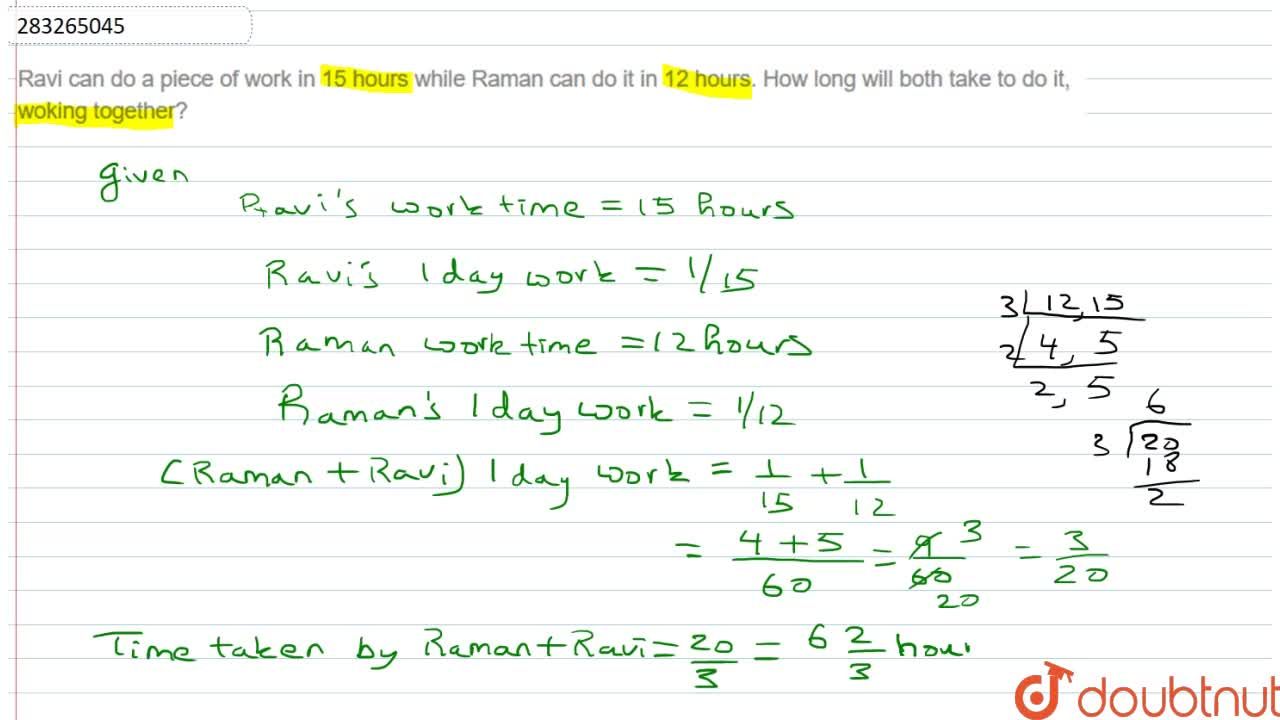 283265045
Ravi can do a piece of work in 15 hours while Raman can do it in 12 hours. How long will both take to do it,
woking together?
given
Ravi's work time = 15 hours
Ravi's 1 day work = 1/15
Raman work time = 12 hours
Raman's 1 day work = 1/12
(Raman + Ravi) 1 day work = 1/15 + 1/12
= 4 + 5/60 = 9 3/60 20 = 3/20
Time taken by Raman + Ravi = 20/3 = 6 2/3 hour
3 12, 15
2 4, 5
2, 5
6
3 20
18
2
doubtnut